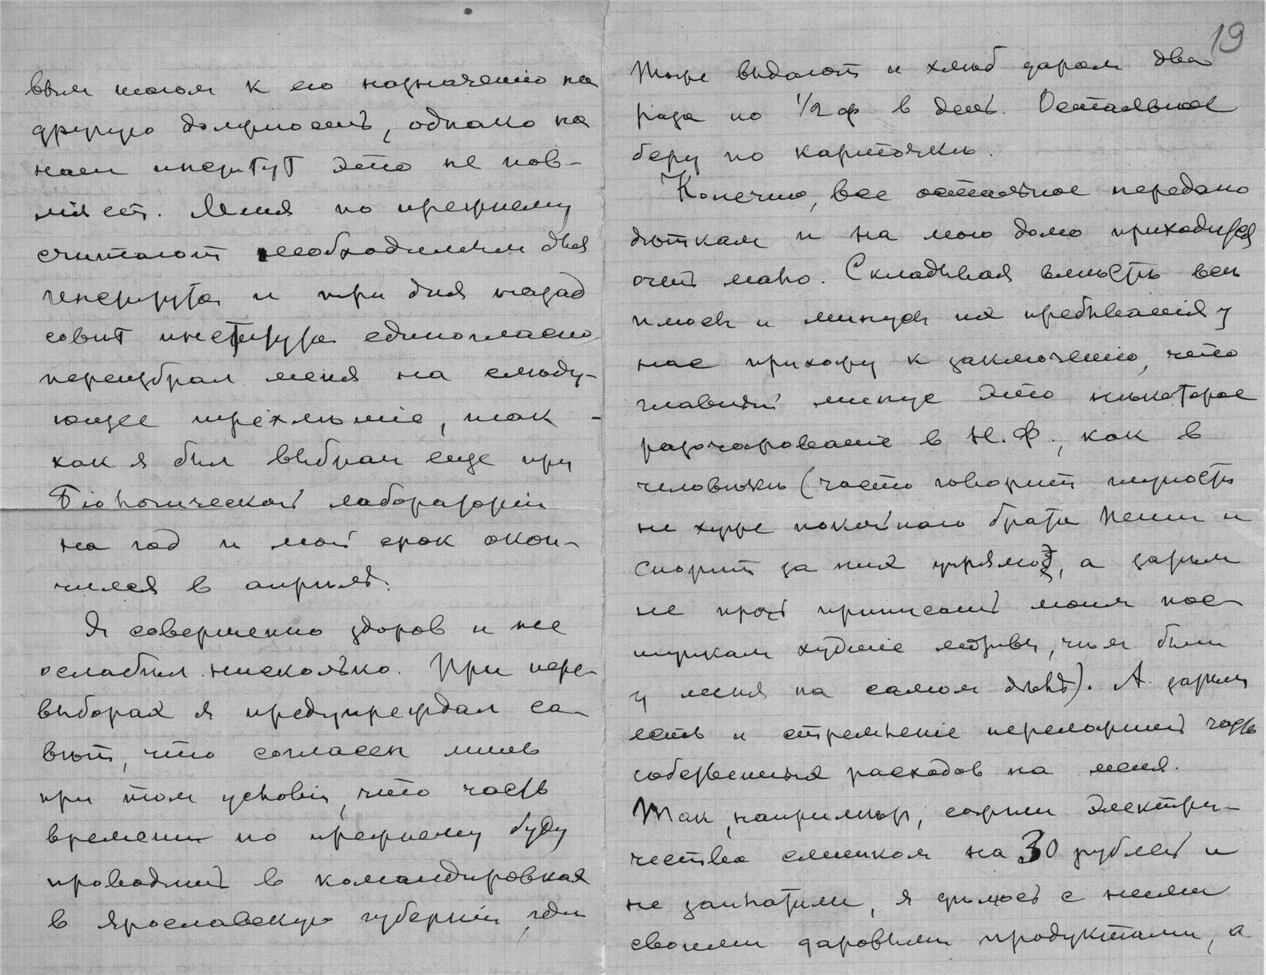 вым шагом к его назначенію на
другую должность, однако на
наш институт это не пов-
ліяет. Меня по прежнему
считают необходимым для
института и три дня назад
совѣт института единогласно
переизбрал меня на слѣду-
ющее трехлѣтіе, так
как я был выбран еще при
Біологической лабораторіи
на год и мой срок окон-
чился в апрѣлѣ.
Я совершенно здоров и не
ослабѣл нисколько. При пере-
выборах я предупреждал со-
вѣт, что согласен лишь
при том условіи, что часть
времени по прежнему буду
проводить в командировках
в Ярославскую губернію, гдѣ
19
выдают и хлѣб даром два
раза по 1/2 ф в день. Остальное
беру по карточкѣ.
Конечно, все остальное передано
дѣткам и на мою долю приходится
очень мало. Складывая вмѣстѣ всѣ
плюсы и минусы их пребыванія у
нас прихожу к заключенію, что
главный минус это нѣкоторое
разочарованіе в Н.Ф., как в
человѣкѣ (часто говорит глупость
не хуже покойного брата и
спорит за них упрямо, а затѣм
не прочь приписать моим пос-
тупкам худшіе мотивы, чѣм были
у меня на самом дѣлѣ). А затѣм
есть и стремленіе переложить часть
собственных расходов на меня.
Так, например, сожгли электри-
чества слишком на 30 рублей и
не заплатили, я дѣлюсь с ними
своими даровыми продуктами, а